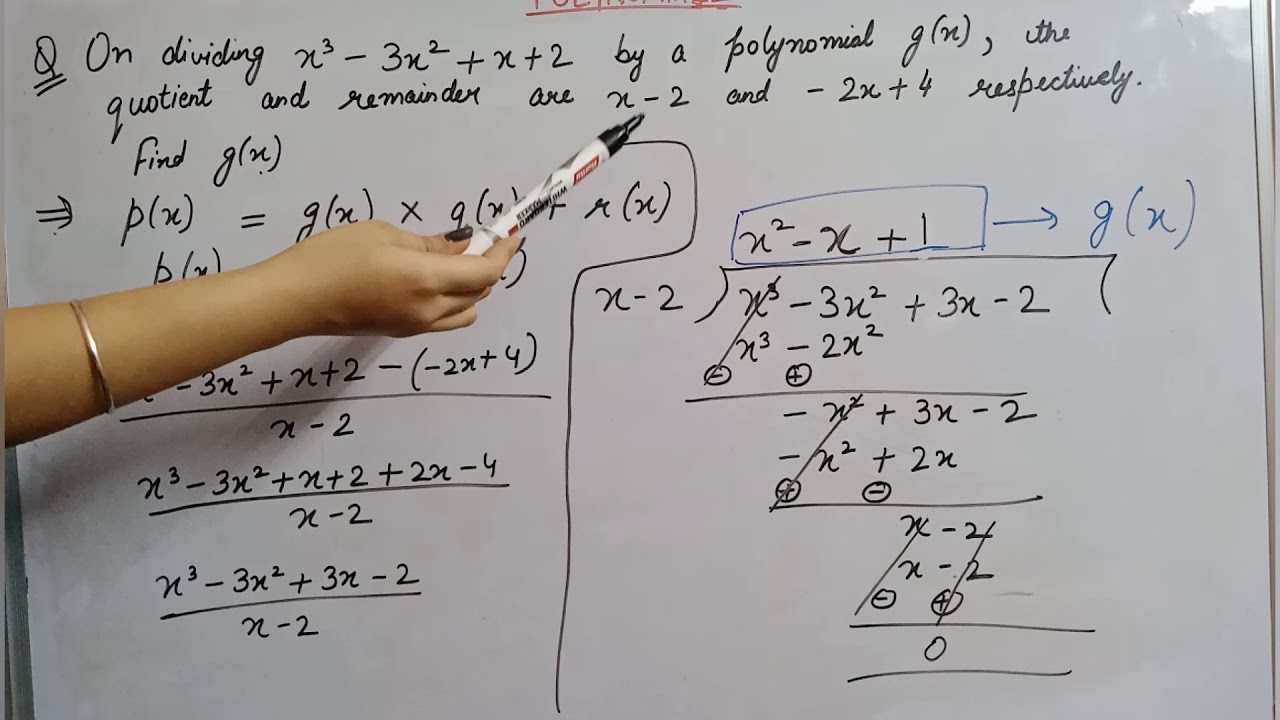 Q On dividing x³ - 3x² + x + 2 by a polynomial g(x), the
quotient and remainder are x - 2 and - 2x + 4 respectively.
Find g(x)
⇒ p(x) = g(x) × q(x) + r(x)
p(x)
- 3x² + x + 2 - (-2x + 4)
x - 2
x³ - 3x² + x + 2 + 2x - 4
x - 2
x³ - 3x² + 3x - 2
x - 2
x² - x + 1 → g(x)
x - 2 ) x³ - 3x² + 3x - 2 (
x³ - 2x²
⊖ ⊕
- x² + 3x - 2
- x² + 2x
⊕ ⊖
x - 2
x - 2
⊖ ⊕
0